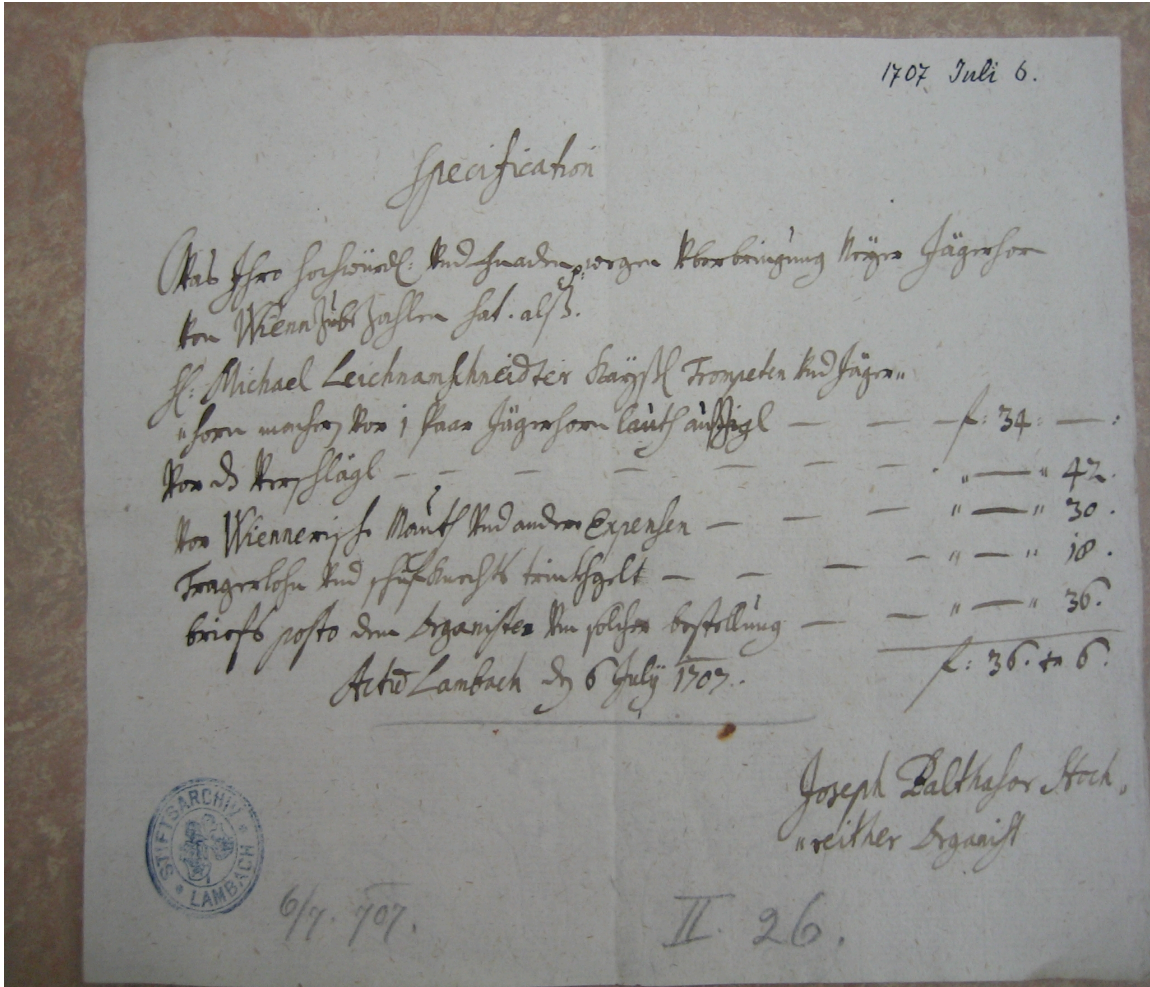 1707 Juli 6.
Specification
Was Ihro Hochwürdl: Vnd Gnaden p: wegen Vberbringung Neyer Jägerhorn
von Wienn zube zahlen hat. alß.
H: Michael Leichnamschneidter Kaysl Trompeten Vnd Jäger„
„horn macher, vor 1 Paar Jägerhorn lauth außzigl — — — f: 34 — :
Vor dz Verschlägl — — — — — — — „ — „ 42.
Vor Wiennerische Mauth Vnd andere Expensen — — — „ — „ 30.
Tragerlohn Vnd schüfknechts trinkhgelt — — — — „ — „ 18.
briefs posto dem Organisten Vm solcher bestellung — — „ — „ 36.
f: 36. xr 6.
Actum Lambach dn 6 July 1707.
Joseph Balthasar Hoch„
„reither Organist
STIFTSARCHIV LAMBACH
6/7. 707.
II. 26.